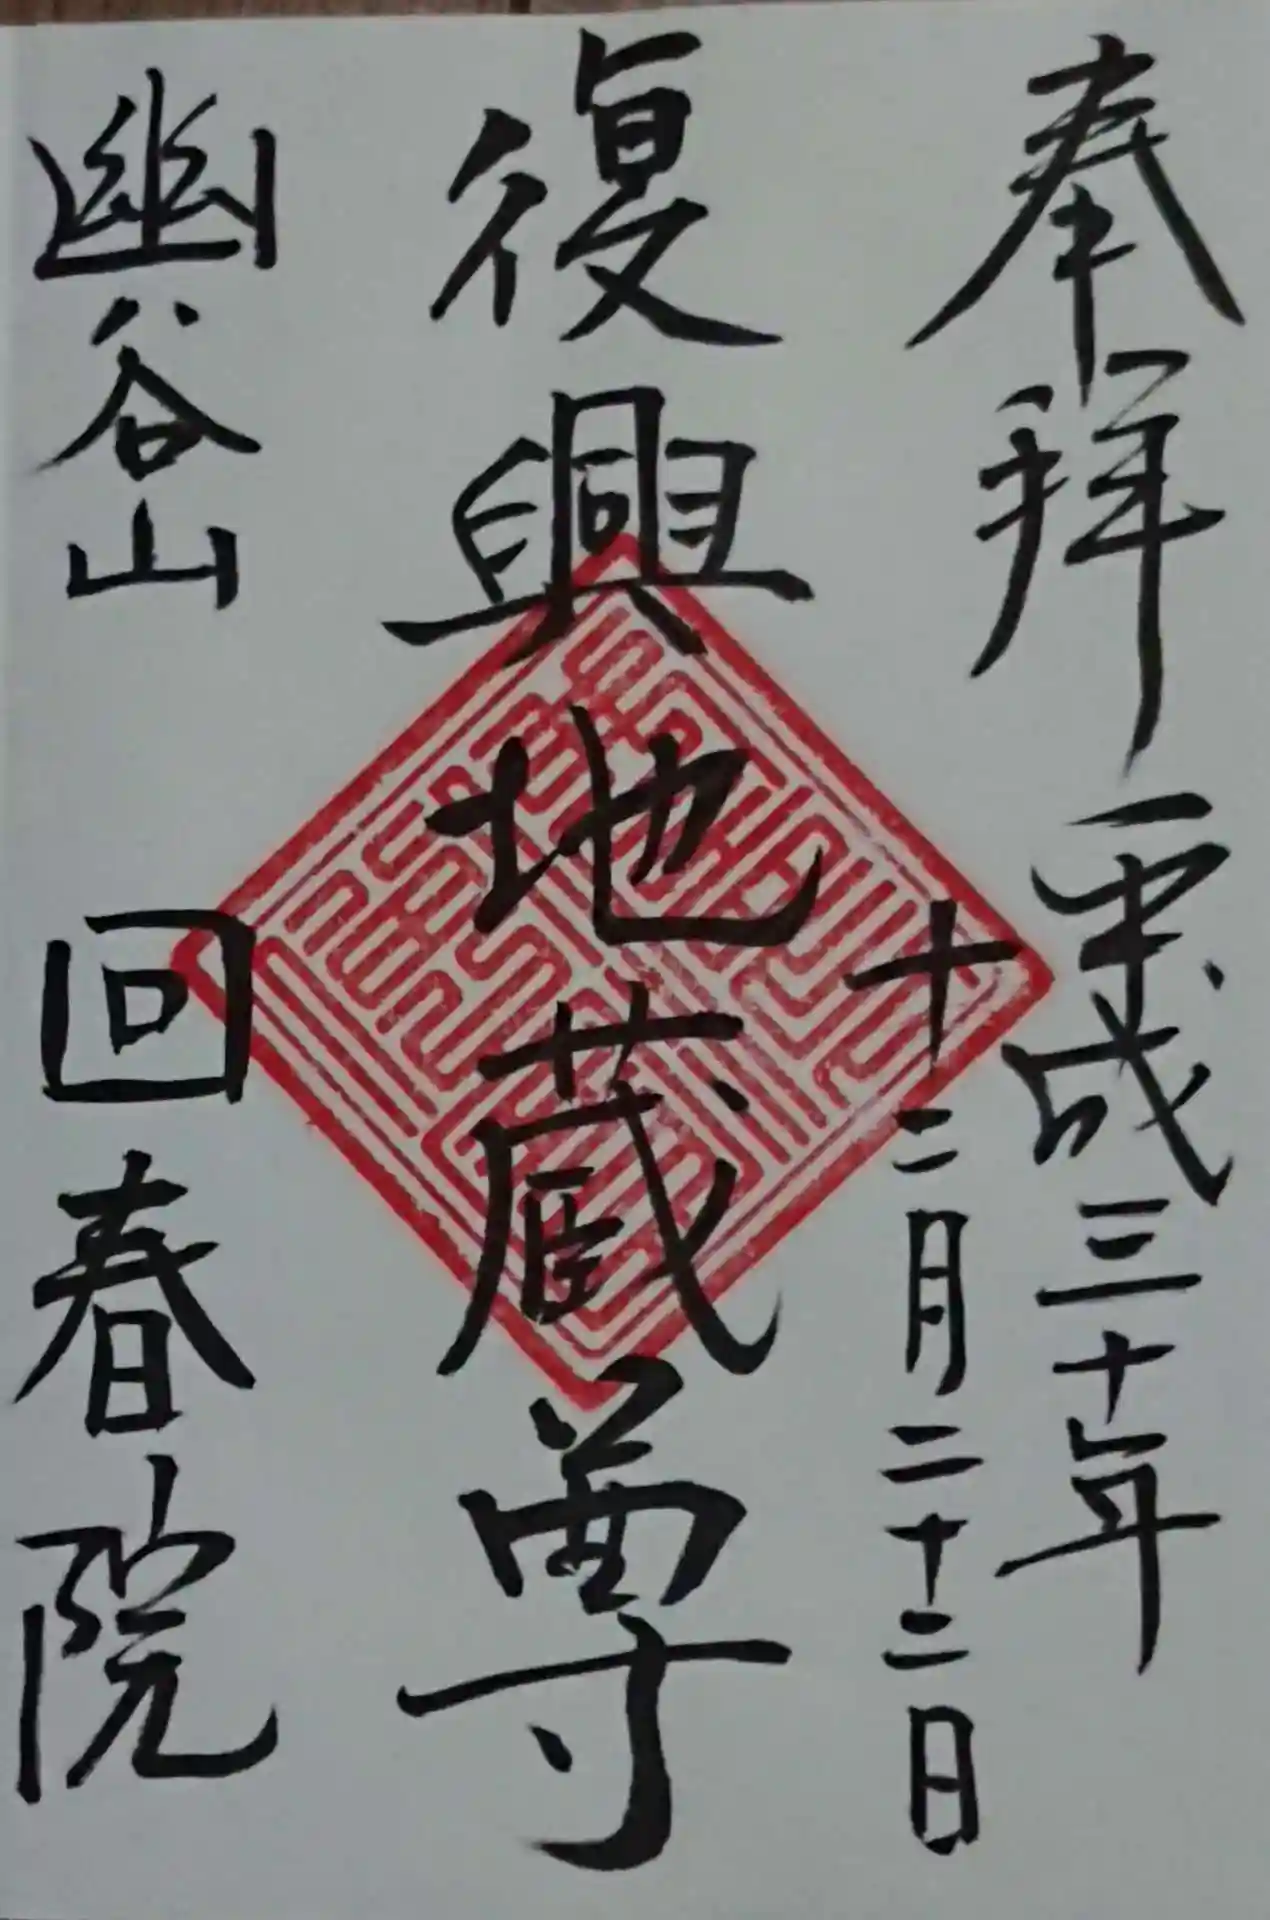 奉拝 平成三十年
十二月二十二日
復興地蔵尊
幽谷山 回春院